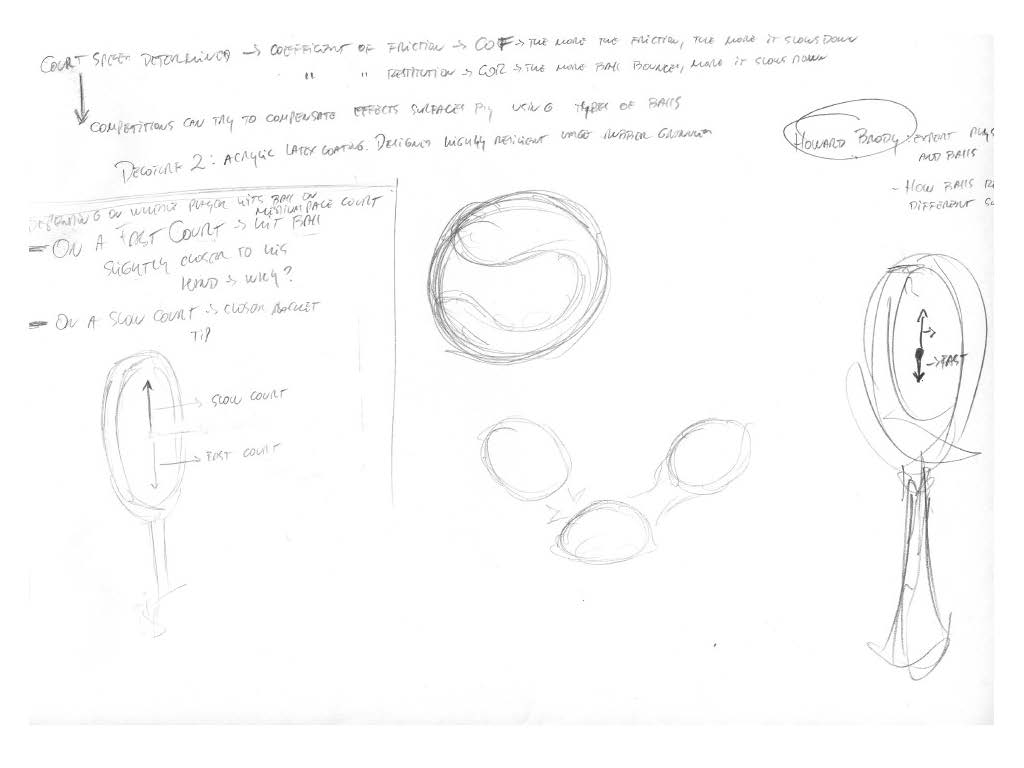 COURT SPEED DETERMINED → COEFFICIENT OF FRICTION → COF → THE MORE THE FRICTION, THE MORE IT SLOWS DOWN
" " RESTITUTION → COR → THE MORE BALL BOUNCES, MORE IT SLOWS DOWN
COMPETITIONS CAN TRY TO COMPENSATE EFFECTS SURFACES BY USING TYPES OF BALLS
DECOTURF 2: ACRYLIC LATEX COATING. DESIGNED HIGHLY RESILIENT RUBBER
HOWARD BRODY: EXPERT PHYS
AND BALLS
- HOW BALLS RE
DIFFERENT SU
DEPENDING ON WHERE PLAYER HITS BALL ON
MEDIUM PACE COURT
- ON A FAST COURT → HIT BALL
SLIGHTLY CLOSER TO HIS
HAND → WHY?
- ON A SLOW COURT → CLOSER RACKET
TIP
→ SLOW COURT
→ FAST COURT
→ FAST